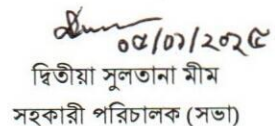 ০৫/০১/২০২৫
দ্বিতীয়া সুলতানা মীম
সহকারী পরিচালক (সভা)